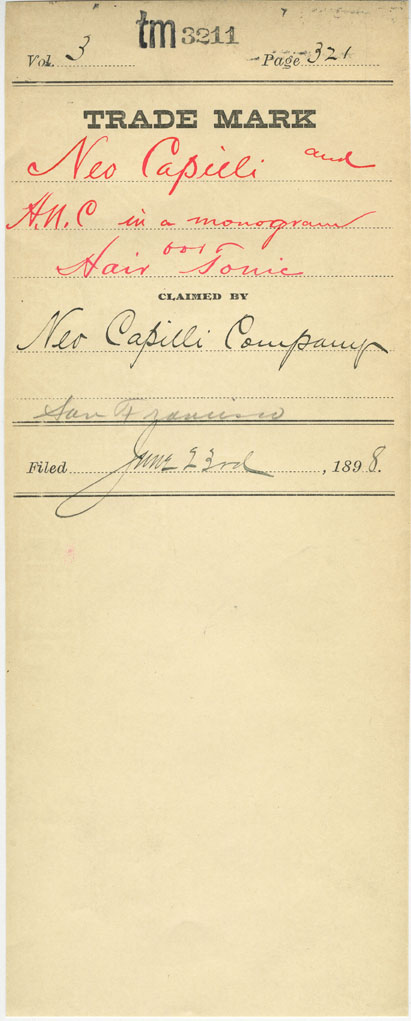 tm 3211
Vol. 3 Page 321
TRADE MARK
Neo Capilli and
H.N.C in a monogram
Hair Tonic
CLAIMED BY
Neo Capilli Company
San Francisco
Filed June 23rd, 1898.